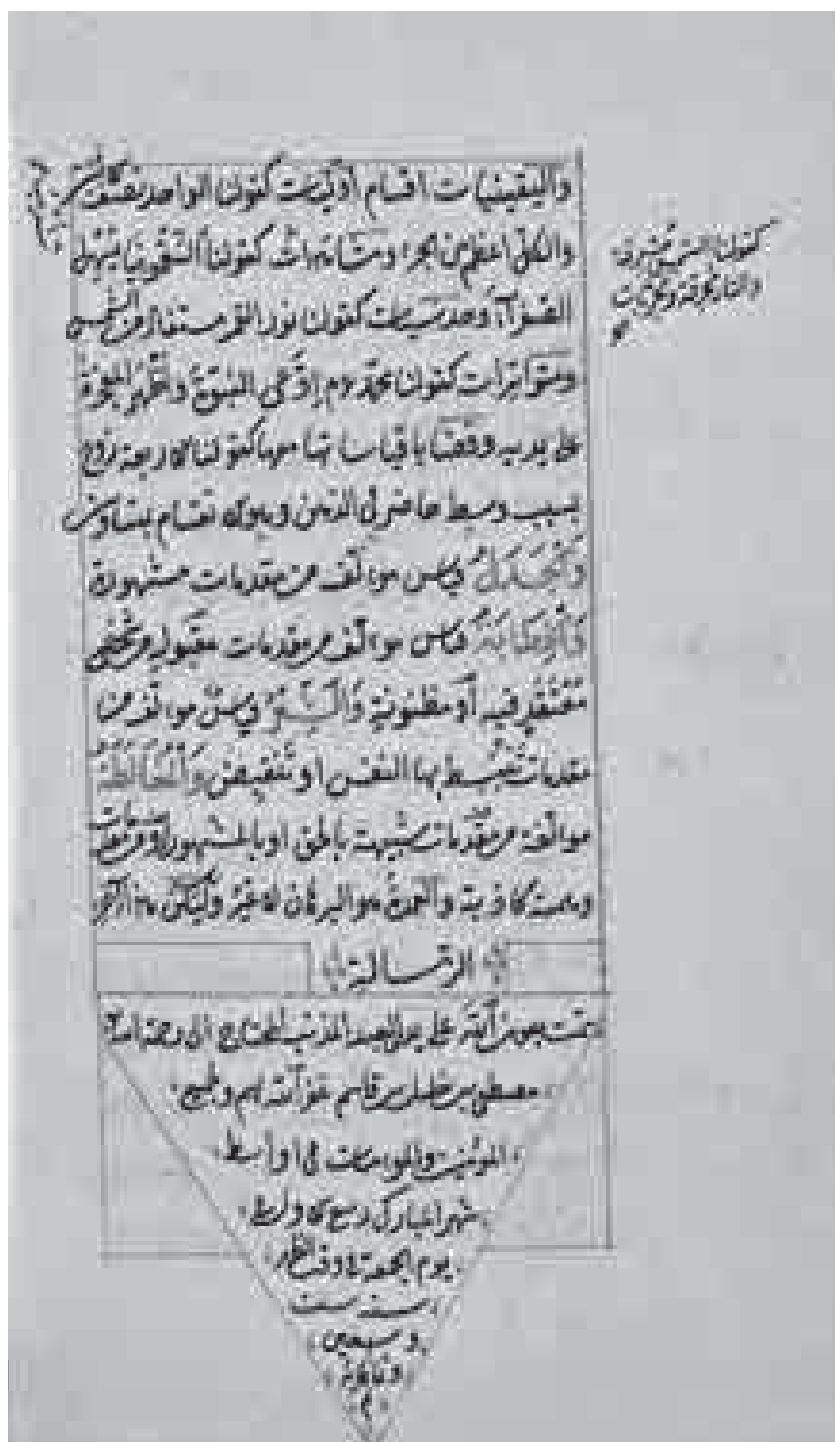 واليقينيات اقسام اوليات كقولنا الواحد نصف الاثنين
والكل اعظم من الجزء ومشاهدات كقولنا السقمونيا يسهل
الصفراء وحدسيات كقولنا نور القمر مستفاد من الشمس
ومتواترات كقولنا محمد عم ادعى النبوة واظهر المعجزة
على يديه وقضايا قياساتها معها كقولنا الاربعة زوج
بسبب وسط حاضر في الذهن وهو الانقسام بمتساويين
والجدل قياس مؤلف من مقدمات مشهورة
والخطابة قياس مؤلف من مقدمات مقبولة من شخص
معتقد فيه او مظنونة والشعر قياس مؤلف من
مقدمات تنبسط بها النفس او تنقبض والمغالطة
مؤلفة من مقدمات شبيهة بالحق او بالمشهور او من مقدمات
وهمية كاذبة والعمدة هو البرهان لا غير وليكن هذا آخر
الرسالة
كقولنا الشمس مشرقة
والنار محرقة ومجربات
تمت بعون الله على يد العبد المذنب المحتاج الى رحمة
مصطفى بن خليل بن قاسم غفر الله لهم ولجميع
المؤمنين والمؤمنات في اواسط
شهر المبارك ربيع الاول
يوم الجمعة في وقت الظهر
سنه ست
وسبعين